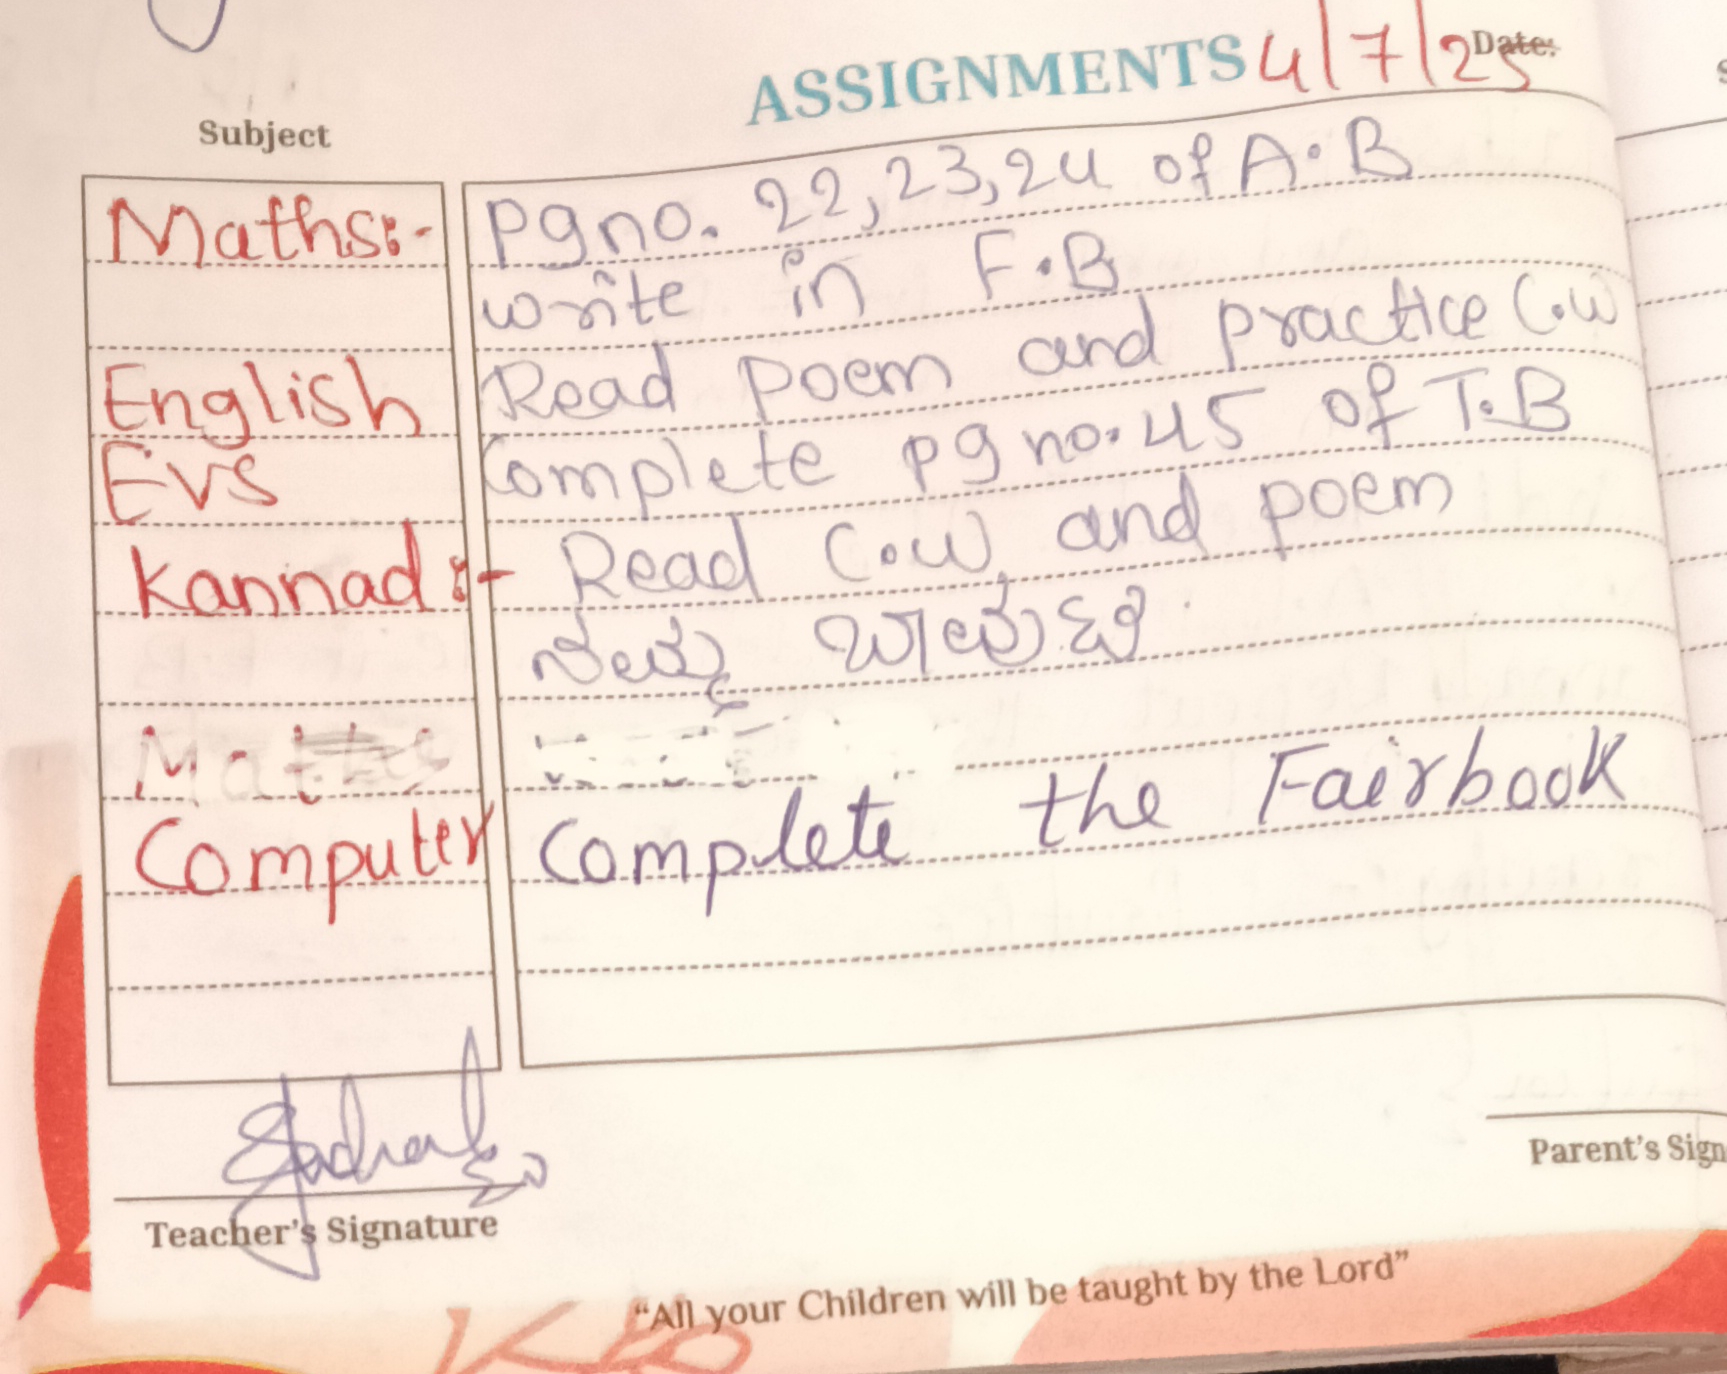 ASSIGNMENTS 4/7/25 Date:
Subject
Maths:- Pg no. 22,23,24 of A.B
write in F.B
English Read poem and practice C.W
EVS Complete pg no. 45 of T.B
Kannad :- Read C.W, and poem
ನಮ್ಮ ಬಾವುಟ
Computer Complete the Fairbook
Teacher's Signature
Parent's Sign
“All your Children will be taught by the Lord”